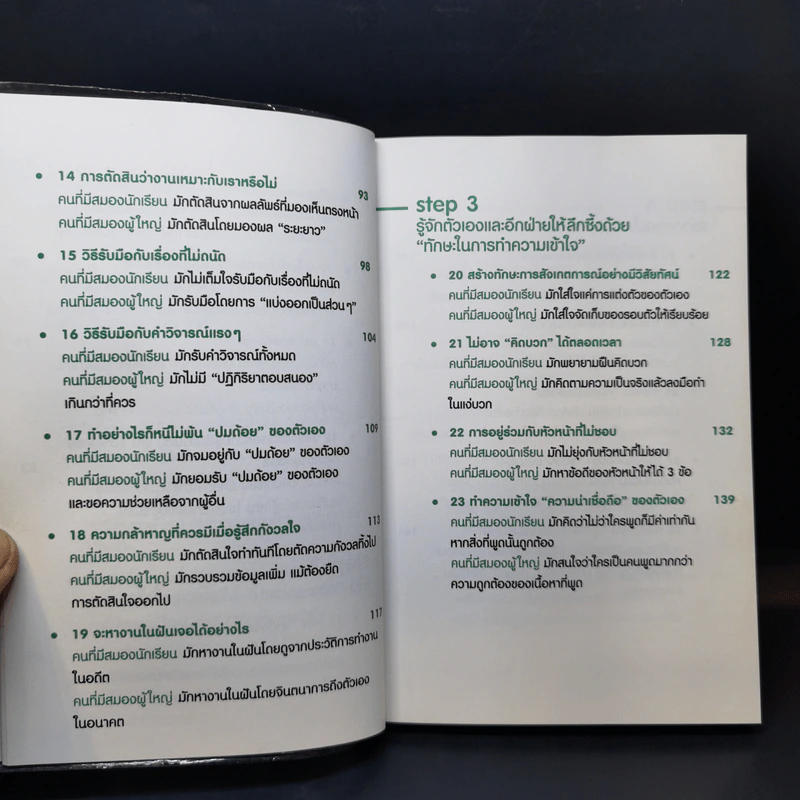 14 การตัดสินว่างานเหมาะกับเราหรือไม่ 93
คนที่มีสมองนักเรียน มักตัดสินจากผลลัพธ์ที่มองเห็นตรงหน้า
คนที่มีสมองผู้ใหญ่ มักตัดสินโดยมองผล “ระยะยาว”
15 วิธีรับมือกับเรื่องที่ไม่ถนัด 98
คนที่มีสมองนักเรียน มักไม่เต็มใจรับมือกับเรื่องที่ไม่ถนัด
คนที่มีสมองผู้ใหญ่ มักรับมือโดยการ “แบ่งออกเป็นส่วนๆ”
16 วิธีรับมือกับคำวิจารณ์แรงๆ 104
คนที่มีสมองนักเรียน มักรับคำวิจารณ์ทั้งหมด
คนที่มีสมองผู้ใหญ่ มักไม่มี “ปฏิกิริยาตอบสนอง”
เกินกว่าที่ควร
17 ทำอย่างไรก็หนีไม่พ้น “ปมด้อย” ของตัวเอง 109
คนที่มีสมองนักเรียน มักจมอยู่กับ “ปมด้อย” ของตัวเอง
คนที่มีสมองผู้ใหญ่ มักยอมรับ “ปมด้อย” ของตัวเอง
และขอความช่วยเหลือจากผู้อื่น
18 ความกล้าหาญที่ควรมีเมื่อรู้สึกกังวลใจ 113
คนที่มีสมองนักเรียน มักตัดสินใจทำทันทีโดยตัดความกังวลทิ้งไป
คนที่มีสมองผู้ใหญ่ มักรวบรวมข้อมูลเพิ่ม แม้ต้องยืด
การตัดสินใจออกไป
19 จะหางานในฝันเจอได้อย่างไร 117
คนที่มีสมองนักเรียน มักหางานในฝันโดยดูจากประวัติการทำงาน
ในอดีต
คนที่มีสมองผู้ใหญ่ มักหางานในฝันโดยจินตนาการถึงตัวเอง
ในอนาคต
step 3
รู้จักตัวเองและอีกฝ่ายให้ลึกซึ้งด้วย
“ทักษะในการทำความเข้าใจ”
20 สร้างทักษะการสังเกตการณ์อย่างมีวิสัยทัศน์ 122
คนที่มีสมองนักเรียน มักใส่ใจแค่การแต่งตัวของตัวเอง
คนที่มีสมองผู้ใหญ่ มักใส่ใจจัดเก็บของรอบตัวให้เรียบร้อย
21 ไม่อาจ “คิดบวก” ได้ตลอดเวลา 128
คนที่มีสมองนักเรียน มักพยายามฝืนคิดบวก
คนที่มีสมองผู้ใหญ่ มักคิดตามความเป็นจริงแล้วลงมือทำ
ในแง่บวก
22 การอยู่ร่วมกับหัวหน้าที่ไม่ชอบ 132
คนที่มีสมองนักเรียน มักไม่ยุ่งกับหัวหน้าที่ไม่ชอบ
คนที่มีสมองผู้ใหญ่ มักหาข้อดีของหัวหน้าให้ได้ 3 ข้อ
23 ทำความเข้าใจ “ความน่าเชื่อถือ” ของตัวเอง 139
คนที่มีสมองนักเรียน มักคิดว่าไม่ว่าใครพูดก็มีค่าเท่ากัน
หากสิ่งที่พูดนั้นถูกต้อง
คนที่มีสมองผู้ใหญ่ มักสนใจว่าใครเป็นคนพูดมากกว่า
ความถูกต้องของเนื้อหาที่พูด